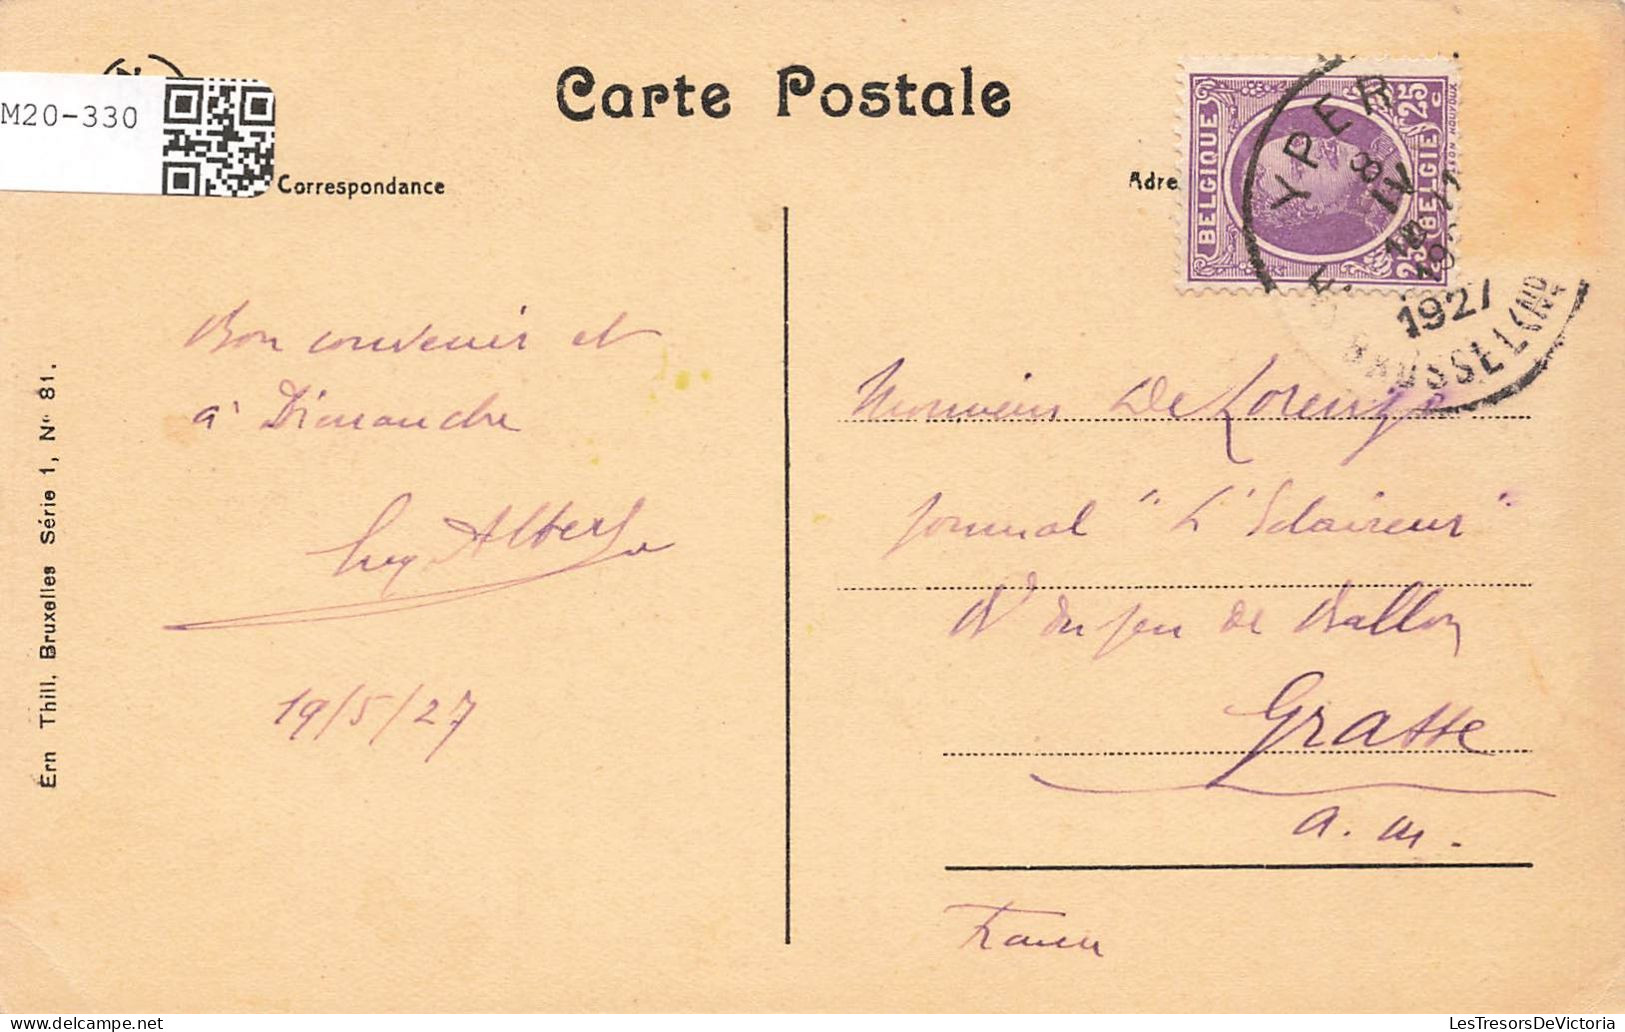 M20-330
Carte Postale
Correspondance
Adre
BELGIQUE
BELGIE
25 C
25
YPER
1927
Bon souvenir et
à Dimanche
Albert
19/5/27
Ern Thill, Bruxelles Série 1, No 81.
Monsieur De Lorenzi
journal "L'Eclaireur"
Bd du jeu de Ballon
Grasse
a. m.
France
www.LesTresorsDeVictoria.com